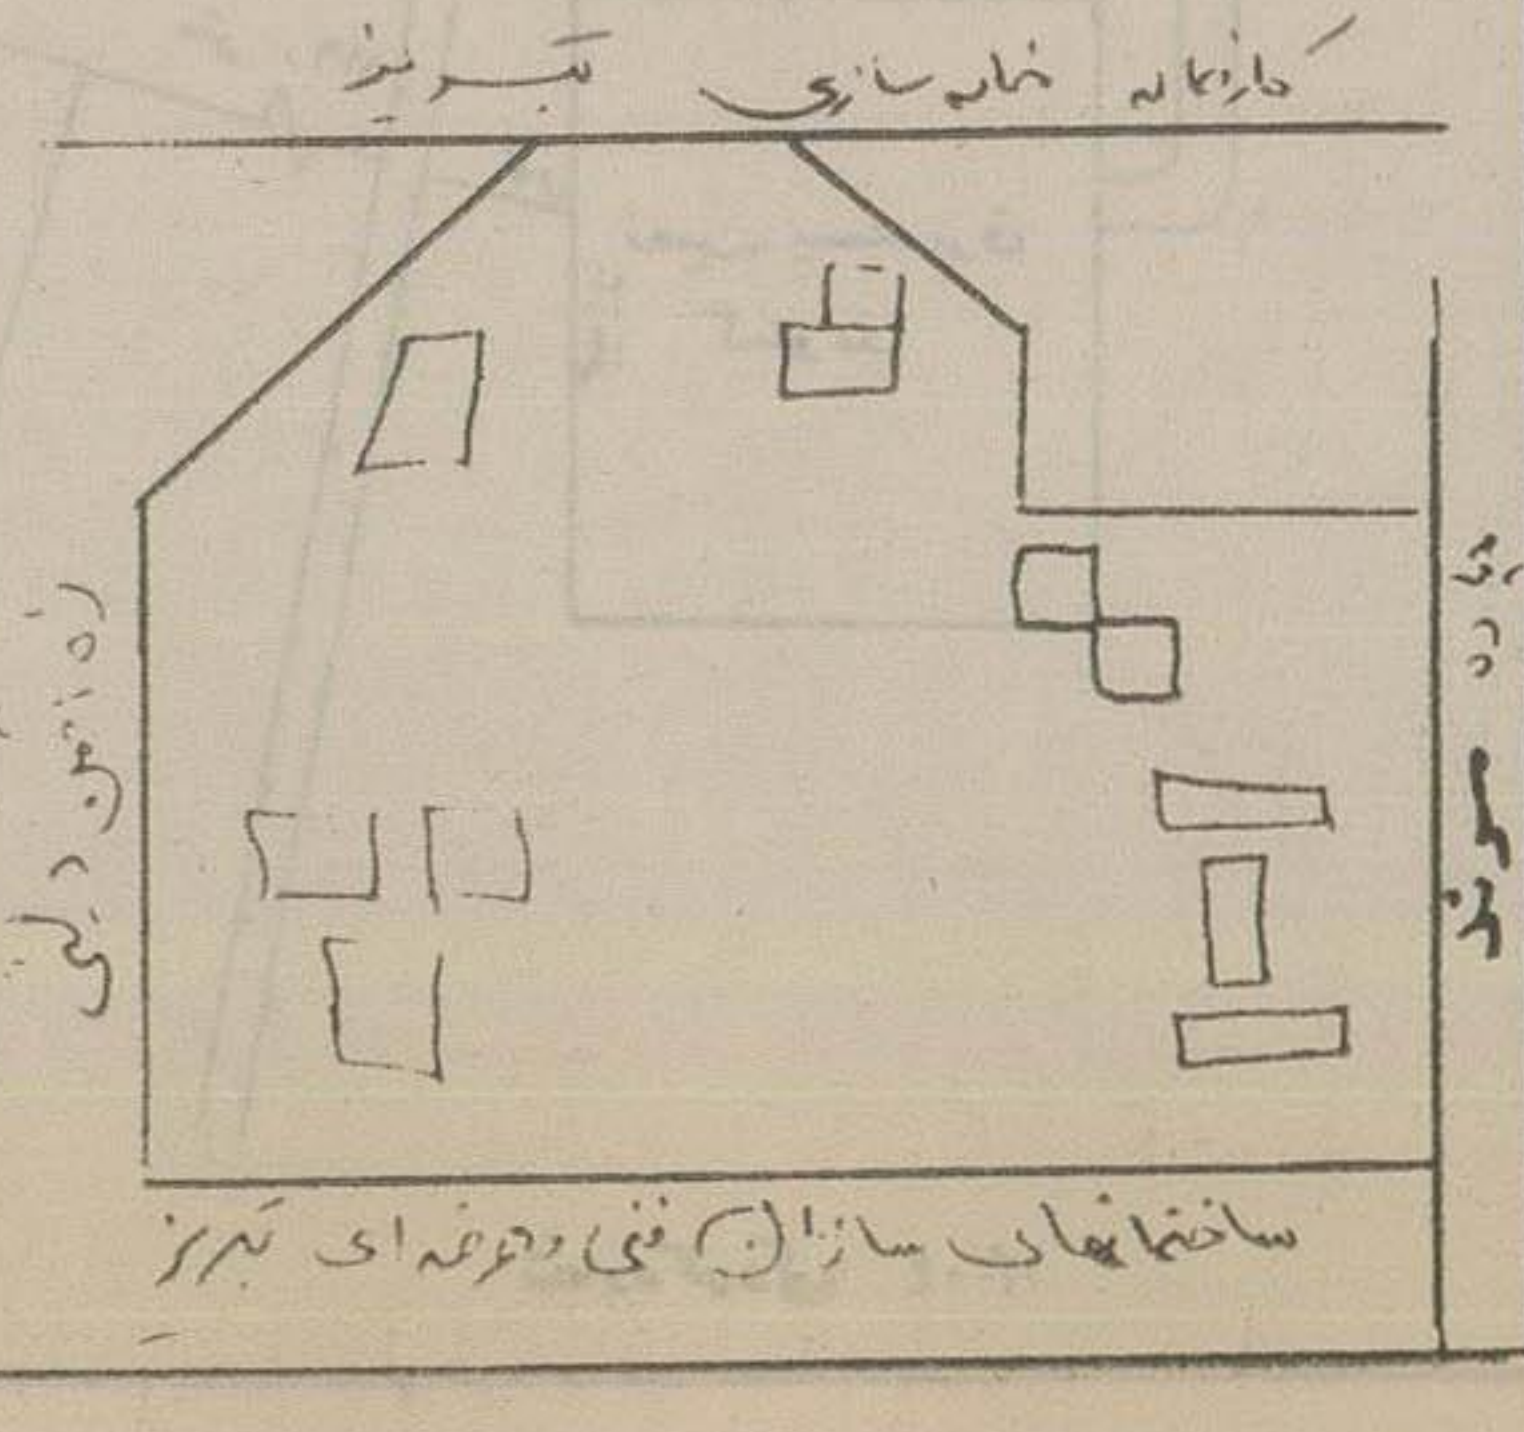 کارخانه خانه سازی تبریز
راه آهن دولتی
ساختمانهای سازمان فنی و حرفه ای تبریز